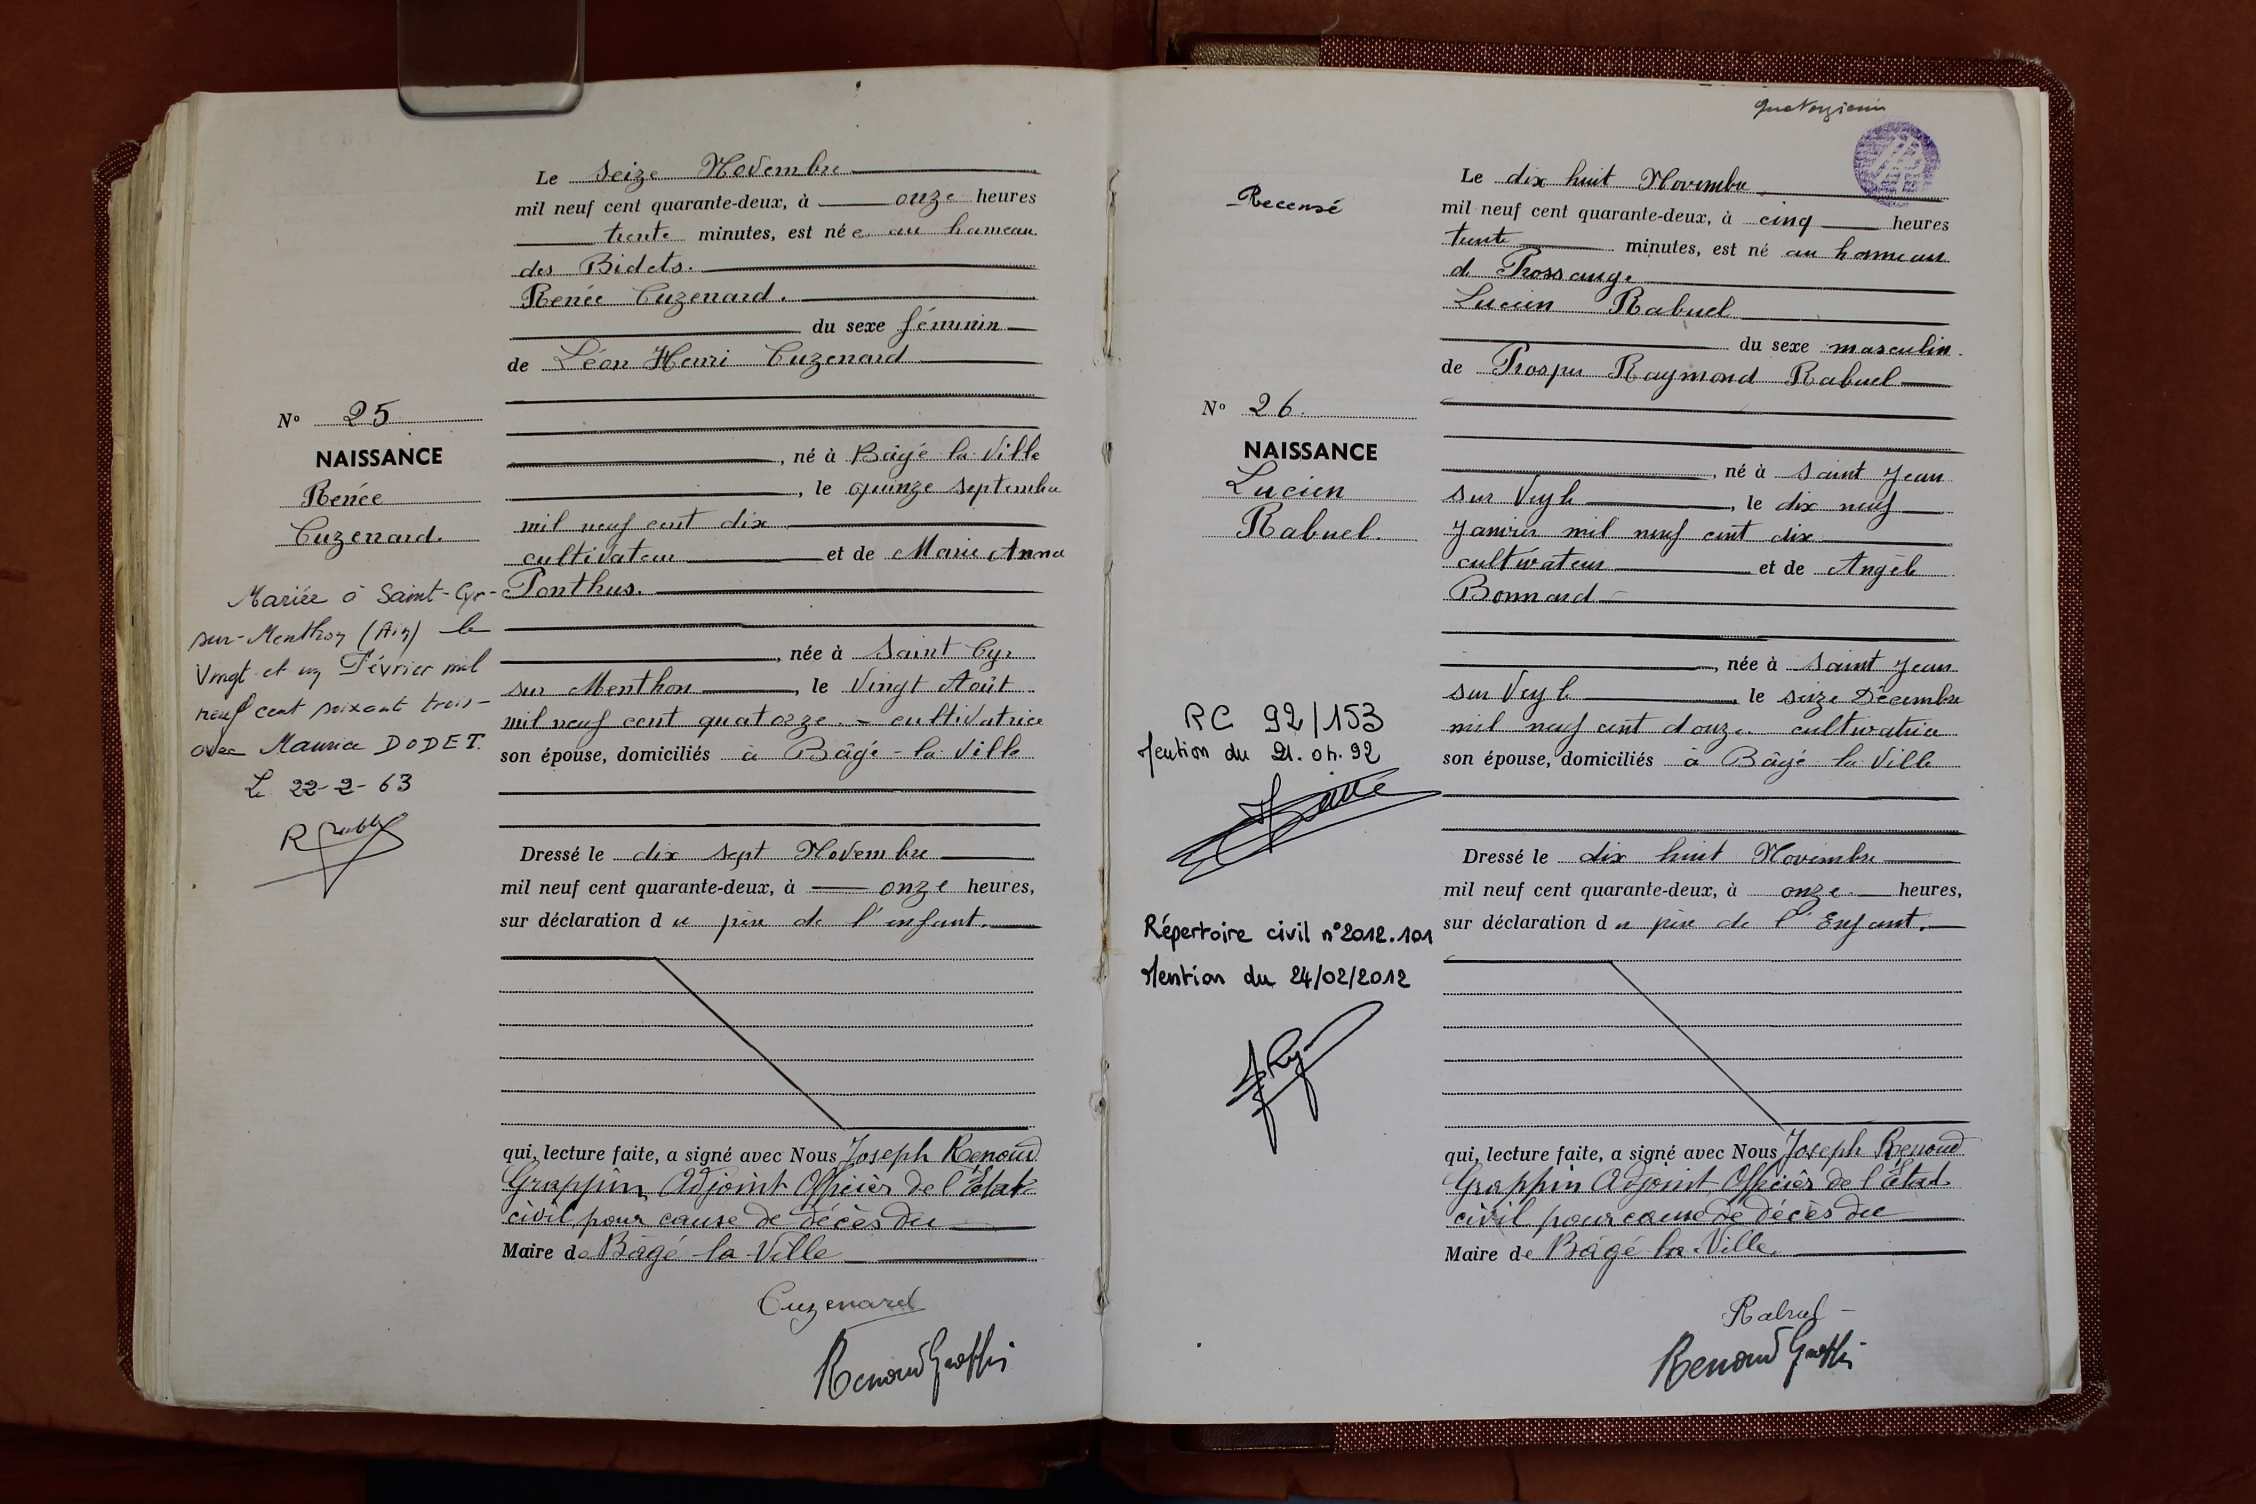 Le seize Novembre
mil neuf cent quarante-deux, à onze heures
trente minutes, est née au hameau
des Bidets.
Renée Cuzenard.
du sexe féminin
de Léon Henri Cuzenard
N° 25
NAISSANCE
Renée
Cuzenard.
, né à Bâgé la Ville
, le quinze septembre
mil neuf cent dix
cultivateur et de Marie Anna
Ponthus.
, née à Saint Cyr
sur Menthon, le Vingt Août
mil neuf cent quatorze - cultivatrice
son épouse, domiciliés à Bâgé-la-Ville
Mariée à Saint-Cyr-
sur-Menthon (Ain) le
Vingt et un Février mil
neuf cent soixant trois-
avec Maurice DODET.
Le 22-2-63
Dressé le dix sept Novembre
mil neuf cent quarante-deux, à onze heures,
sur déclaration du père de l'enfant.
qui, lecture faite, a signé avec Nous Joseph Renoud
Grappin Adjoint Officier de l'État
civil pour cause de décès du
Maire de Bâgé-la-Ville
Cuzenard
Renoud Grappin
Le dix huit Novembre
mil neuf cent quarante-deux, à cinq heures
trente minutes, est né au hameau
Lucien Rabuel
du sexe masculin.
de Prosper Raymond Rabuel
Recensé
N° 26.
NAISSANCE
Lucien
Rabuel.
, né à Saint Jean
sur Veyle, le dix neuf
Janvier mil neuf cent dix
cultivateur et de Angèle
Bonnard
, née à Saint Jean
sur Veyle le seize Décembre
mil neuf cent douze cultivatrice
son épouse, domiciliés à Bâgé la Ville
RC 92/153
Mention du 21.04.92
Répertoire civil n°2012.101
Mention du 24/02/2012
Dressé le dix huit Novembre
mil neuf cent quarante-deux, à onze heures,
sur déclaration du père de l'Enfant.
qui, lecture faite, a signé avec Nous Joseph Renoud
Grappin Adjoint Officier de l'État
civil pour cause de décès du
Maire de Bâgé-la-Ville
Rabuel
Renoud Grappin